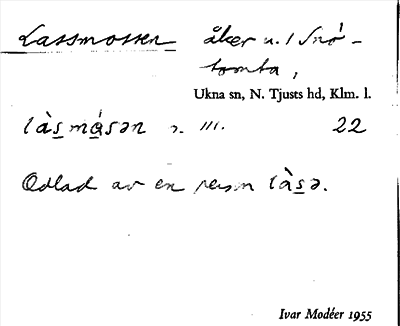 Lassmossen åker u. / Snö-
tomta,
Ukna sn, N. Tjusts hd, Klm. l.
làs̲må̲sən III. 22
Odlad av en person làs̲ə.
Ivar Modéer 1955